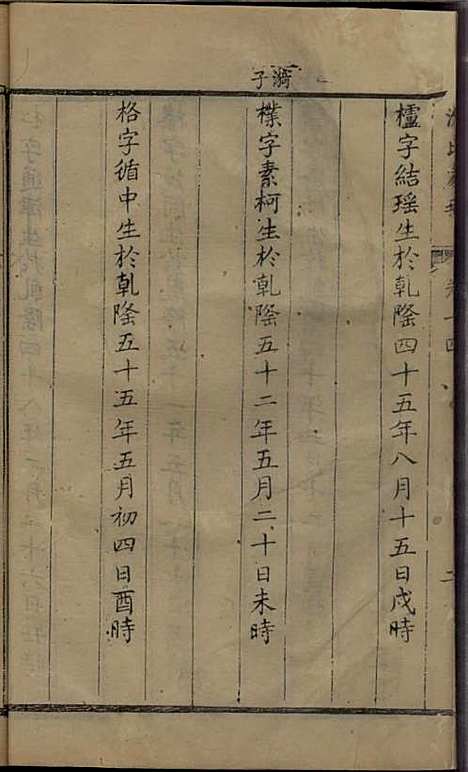 櫨字結瑤生於乾隆四十五年八月十五日戌時
漪子
檏字素柯生於乾隆五十二年五月二十日未時
格字循中生於乾隆五十五年五月初四日酉時